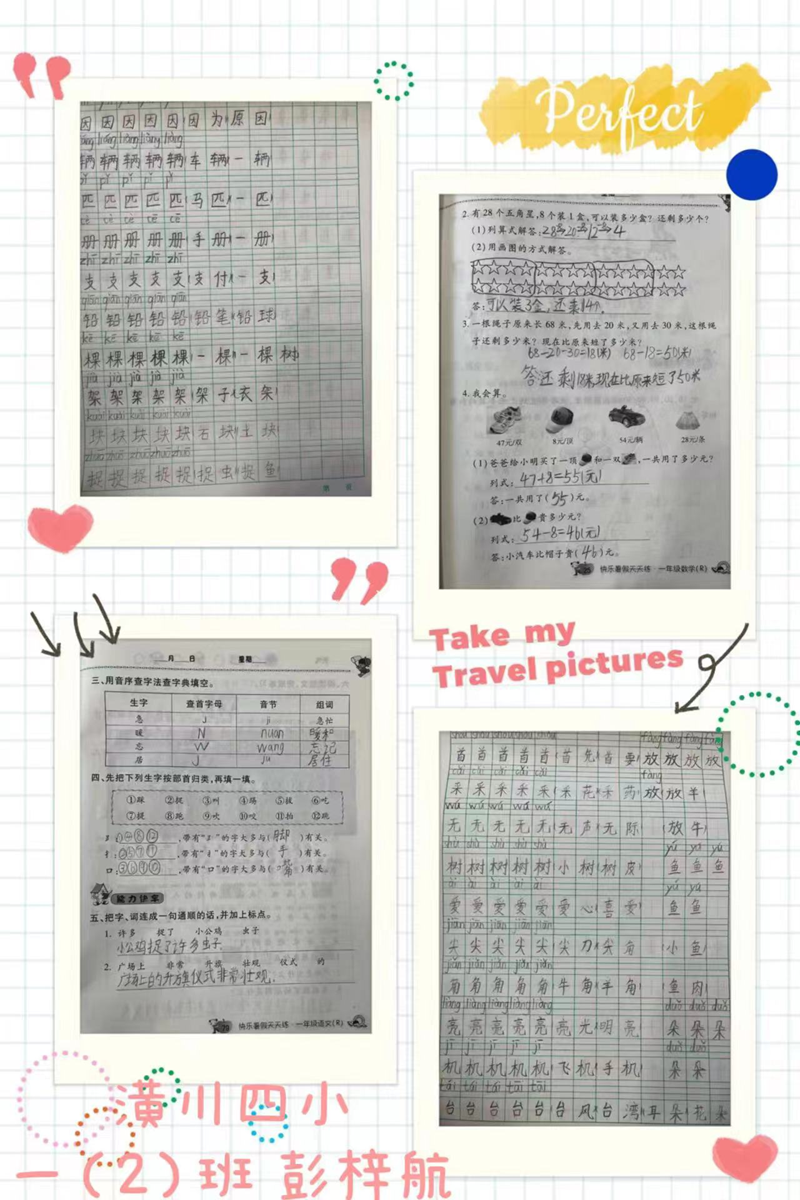 Perfect
因 因 因 因 因 因 为 原 因
liàng liàng liàng liàng
辆 辆 辆 辆 辆 车 辆 一 辆
pǐ pǐ pǐ pǐ pǐ
匹 匹 匹 匹 匹 马 匹 一 匹
cè cè cè cè cè
册 册 册 册 册 手 册 一 册
zhī zhī zhī zhī zhī
支 支 支 支 支 支 付 一 支
qiān qiān qiān qiān qiān
铅 铅 铅 铅 铅 铅 笔 铅 球
kē kē kē kē kē
棵 棵 棵 棵 棵 一 棵 一 棵 树
jià jià jià jià jià
架 架 架 架 架 架 子 衣 架
kuài kuài kuài kuài kuài
块 块 块 块 块 石 块 土 块
zhuō zhuō zhuō zhuō zhuō
捉 捉 捉 捉 捉 捉 虫 捉 鱼
2.有28个五角星,8个装1盒,可以装多少盒?还剩多少个?
(1)列算式解答:
(2)用画图的方式解答。
答:可以装3盒,还剩4个。
3.一根绳子原来长68米,先用去20米,又用去30米,这根绳
子还剩多少米?现在比原来短了多少米?
68-20-30=18(米) 68-18=50(米)
答还剩18米现在比原来短了50米
4.我会算。
47元/双 8元/顶 54元/辆 28元/条
(1)爸爸给小明买了一顶 和一双 ,一共用了多少元?
列式:47+8=55(元)
答:一共用了(55)元。
(2) 比 贵多少元?
列式:54-8=46(元)
答:小汽车比帽子贵(46)元。
快乐暑假天天练 一年级数学(R)
Take my
Travel pictures
月 日 星期
三、用音序查字法查字典填空。
生字 查首字母 音节 组词
急 J jí 急忙
暖 N nuan 暖和
忘 W wang 忘记
居 J ju 居住
四、先把下列生字按部首归类,再填一填。
①踩 ②捉 ③叫 ④踢 ⑤拔 ⑥吃
⑦捉 ⑧跑 ⑨吹 ⑩咬 ⑪拍 ⑫跳
,带有“ ”的字大多与(脚)有关。
扌: ,带有“扌”的字大多与(手)有关。
口: ,带有“口”的字大多与(嘴)有关。
能力快车
五、把字、词连成一句通顺的话,并加上标点。
1. 许多 捉了 小公鸡 虫子
小公鸡捉了许多虫子.
2. 广场上 非常 升旗 壮观 仪式 的
广场上的升旗仪式非常壮观.
快乐暑假天天练 一年级语文(R)
首 首 首 首 首 首 先 首 要 放 放 放 放
cǎi cǎi cǎi cǎi cǎi fàng
采 采 采 采 采 采 花 采 药 放 放 牛
wú wú wú wú wú
无 无 无 无 无 无 声 无 际 放 牛
shù shù shù shù shù yú yú yú
树 树 树 树 树 小 树 树 皮 鱼 鱼 鱼
ài ài ài ài ài yú yú
爱 爱 爱 爱 爱 爱 心 喜 爱 鱼 鱼
jiān jiān jiān jiān jiān
尖 尖 尖 尖 尖 尖 刀 尖 角 小 鱼
jiǎo jiǎo jiǎo jiǎo jiǎo
角 角 角 角 角 牛 角 羊 角 鱼 肉
liàng liàng liàng liàng liàng duǒ duǒ duǒ
亮 亮 亮 亮 亮 亮 光 明 亮 朵 朵 朵
jī jī jī jī jī duǒ duǒ
机 机 机 机 机 飞 机 手 机 朵 朵
tái tái tái tái tái
台 台 台 台 台 台 风 台 湾 耳 朵 花 朵
潢川四小
一(2)班 彭梓航